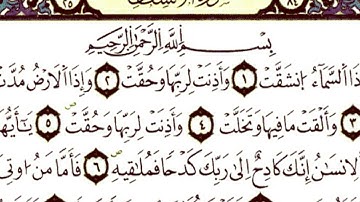 بِسْمِ اللَّهِ الرَّحْمَٰنِ الرَّحِيمِ
السَّمَاءُ انشَقَّتْ ١ وَأَذِنَتْ لِرَبِّهَا وَحُقَّتْ ٢ وَإِذَا الْأَرْضُ مُدَّتْ
٣ وَأَلْقَتْ مَا فِيهَا وَتَخَلَّتْ ٤ وَأَذِنَتْ لِرَبِّهَا وَحُقَّتْ ٥ يَا أَيُّهَا
الْإِنسَانُ إِنَّكَ كَادِحٌ إِلَىٰ رَبِّكَ كَدْحًا فَمُلَاقِيهِ ٦ فَأَمَّا مَنْ أُوتِيَ